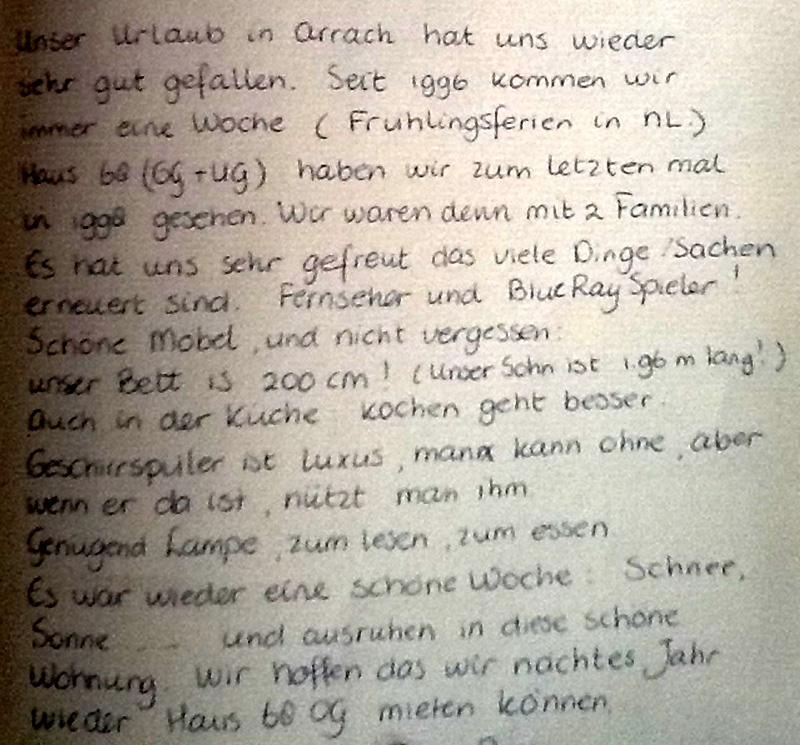 Unser Urlaub in Arrach hat uns wieder
sehr gut gefallen. Seit 1996 kommen wir
immer eine Woche ( Fruhlingsferien in NL.)
Haus 60 (OG + UG) haben wir zum letzten mal
in 1998 gesehen. Wir waren denn mit 2 Familien.
Es hat uns sehr gefreut das viele Dinge /Sachen
erneuert sind. Fernseher und BlueRay Spieler !
Schöne Mobel, und nicht vergessen:
unser Bett is 200 cm ! (Unser Sohn ist 1.96 m lang!)
Auch in der Küche kochen geht besser.
Geschirrspuler ist luxus, man kann ohne, aber
wenn er da ist, nützt man ihm.
Genugend Lampe, zum lesen, zum essen
Es war wieder eine schöne Woche: Schnee,
Sonne ... und ausruhen in diese schöne
Wohnung. Wir hoffen das wir nachtes Jahr
wieder Haus 60 OG mieten können.